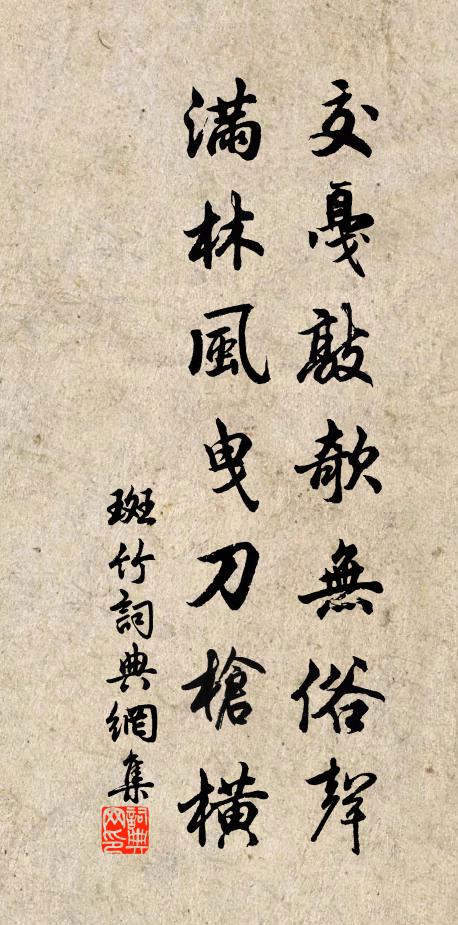 交戛敲欹無俗聲
滿林風曳刀槍橫
斑竹詞典網集
詞典網印